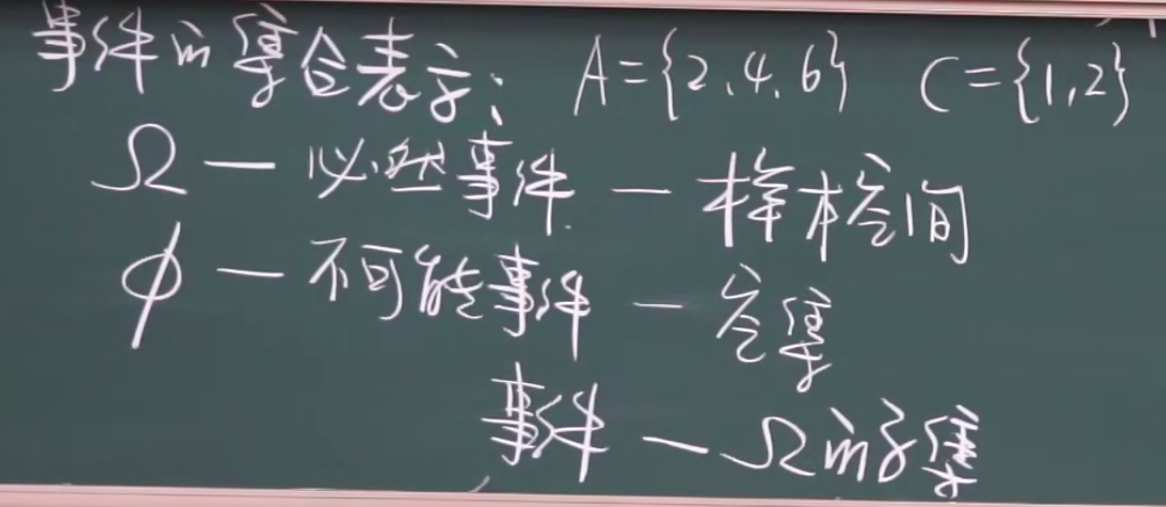 事件的集合表示: A={2,4,6} C={1,2}
Ω — 必然事件 — 样本空间
ϕ — 不可能事件 — 空集
事件 — Ω的子集